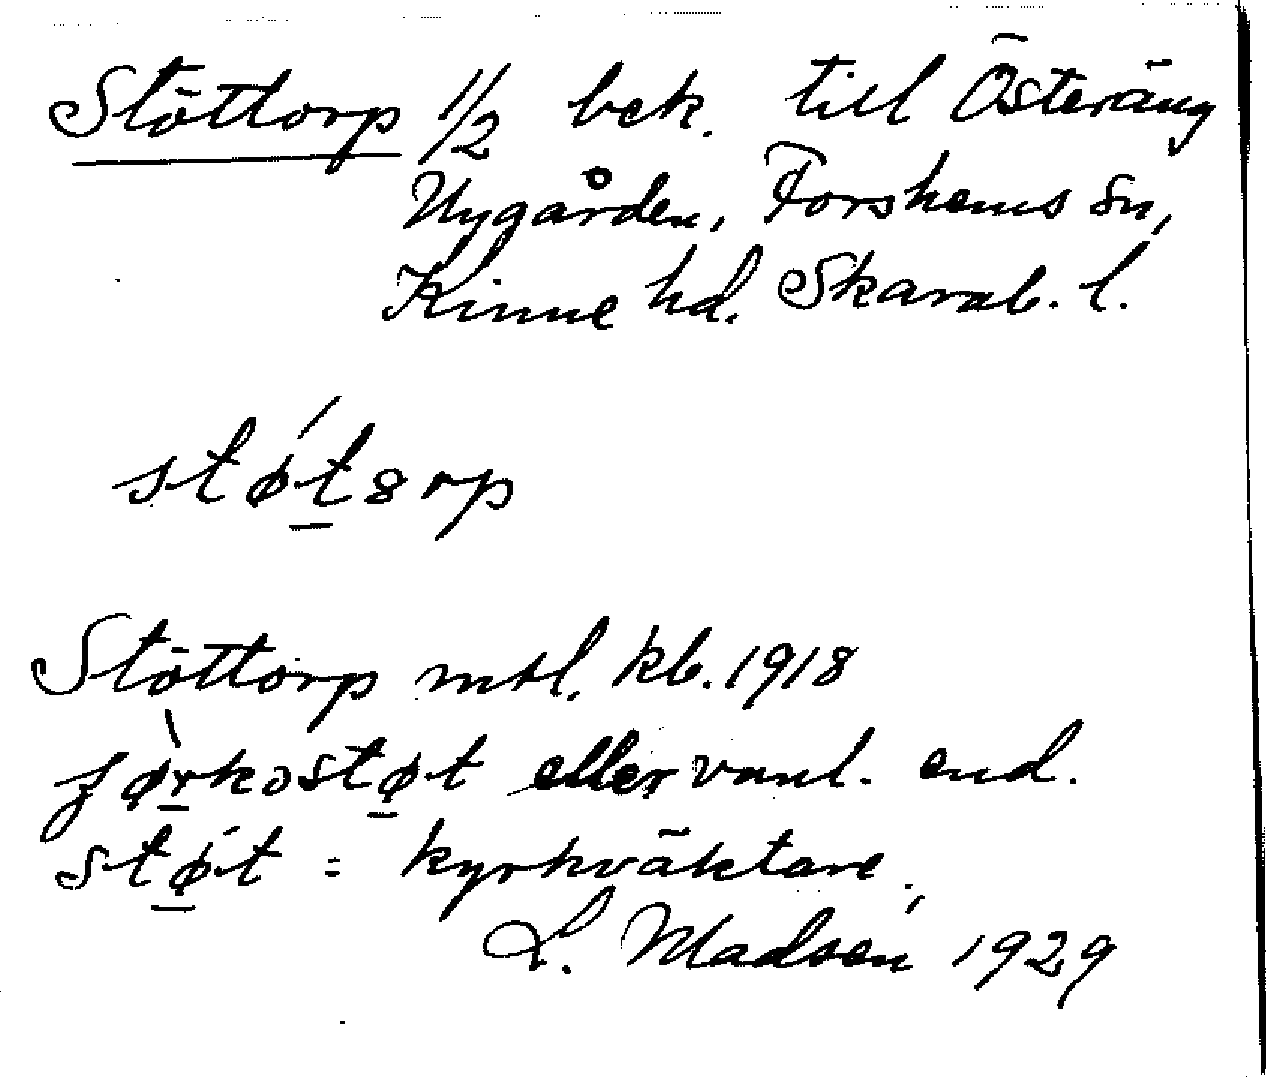 Stöttorp 1/2 bek. till Österäng
Nygården, Forshems sn,
Kinne hd. Skarab. l.
støt̠ȣrp
Stöttorp mtl. kb. 1918
før̠kɔstø̠t eller vanl. end.
stø̠t = kyrkväktare.
L. Madsén 1929